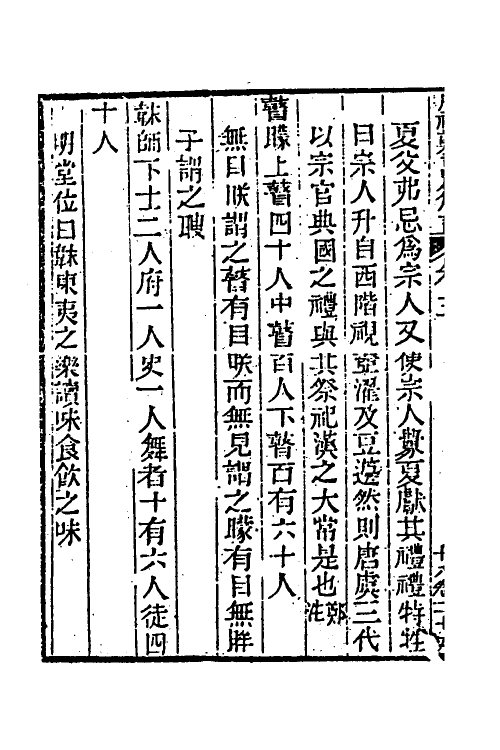 夏父弗忌為宗人又使宗人釁夏獻其禮禮特牲
曰宗人升自西階視壺濯及豆籩然則唐虞三代
以宗官典國之禮與其祭祀漢之大常是也鄭注
瞽矇上瞽四十人中瞽百人下瞽百有六十人
無目眹謂之瞽有目眹而無見謂之矇有目無眸
子謂之瞍
韎師下士二人府一人史一人舞者十有六人徒四
十人
明堂位曰韎東夷之樂讀味食飲之味